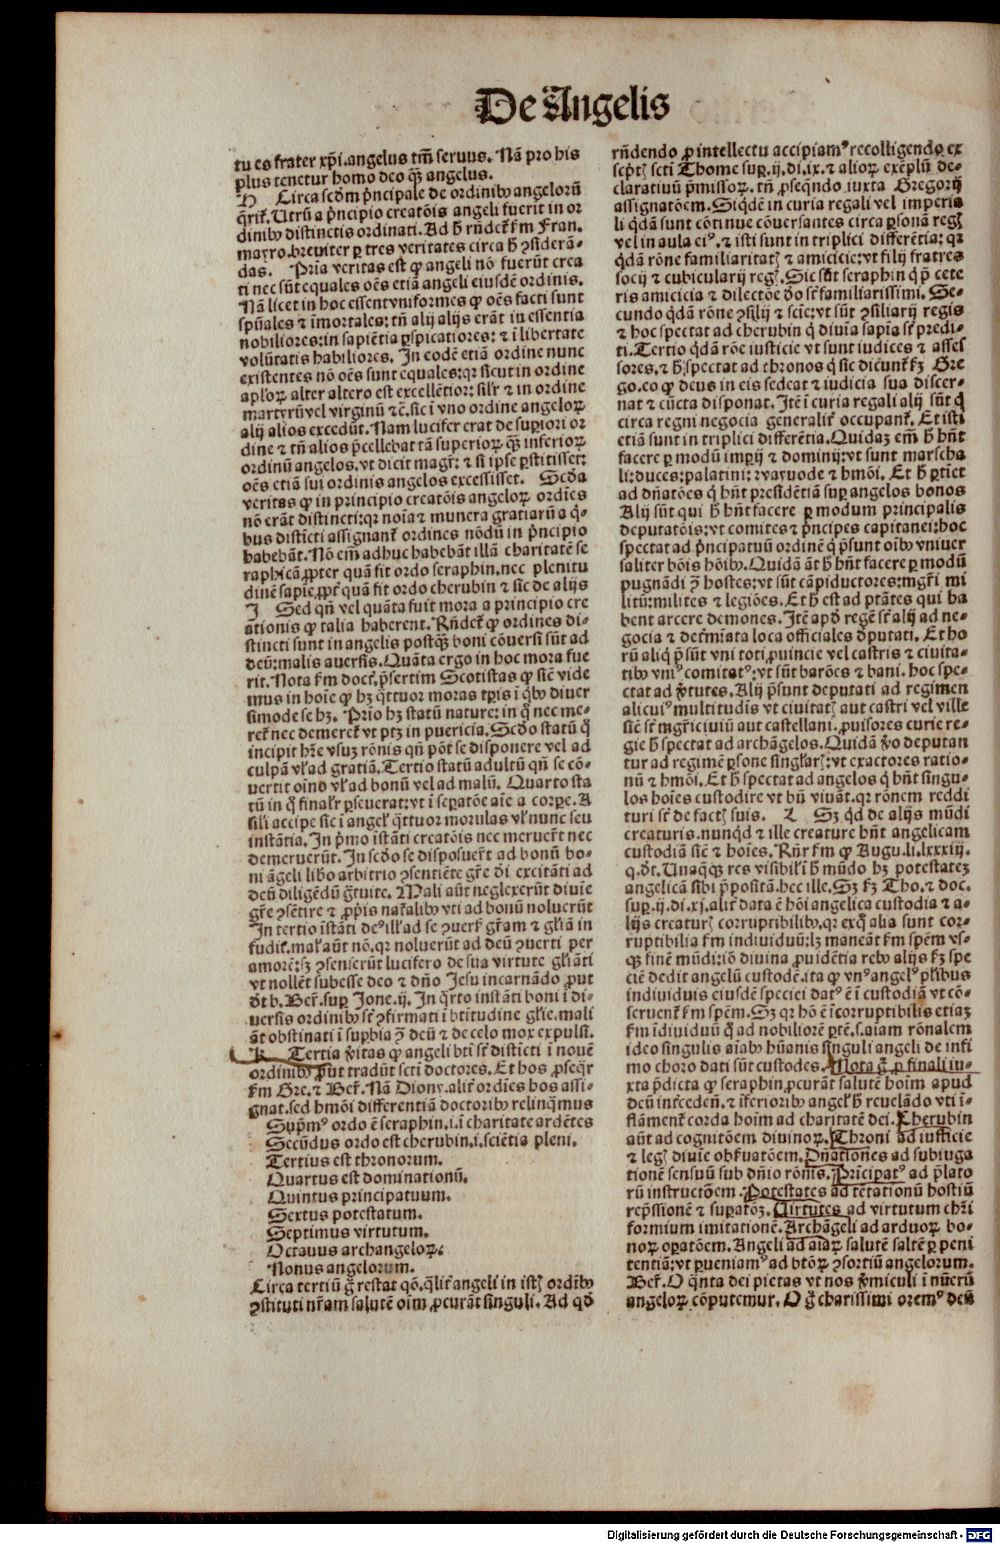 De Angelis
tu es frater xp̄i.angelus tm̄ seruus. Nā pro his
plus tenetur homo deo q̄ȝ angelus.
H Circa scd̓m p̓ncipale de ordinibꝰ angeloꝝ
q̄rit̄. Utrū a p̓ncipio creatōis angeli fuerīt in or
dinibꝰ distinctis ordinati. Ad h̄ rn̄det̄ ẜm Fran.
mayro.breuiter ꝑ tres veritates circa h̄ ꝯsiderā-
das. Pria veritas est ꝙ angeli nō fuerūt crea
ti nec sūt equales oēs etiā angeli eiusdē ordinis.
Nā licet in hoc essent vniformes ꝙ oēs facti sunt
spūales ⁊ īmortales: tn̄ alij alijs erāt in essentia
nobiliores:in sapiētia ꝑspicatiores: ⁊ ī libertate
volūtatis habiliores. In eodē etiā ordine nunc
existentes nō oēs sunt equales:qꝛ sicut in ordine
apl̓oꝝ alter altero est excellētior: sil̓r ⁊ in ordine
martyrū vel virginū ⁊c̄. sic ī vno ordine angeloꝝ
alij alios excedūt. Nam lucifer erat de superiori or
dine ⁊ tn̄ alios p̄cellebat tā superioꝝ q̄ȝ inferioꝝ
ordinū angelos. vt dicit magr̄: ⁊ si ipse ꝑstitisset:
oēs etiā sui ordinis angelos excessisset. Scd̓a
veritas ꝙ in principio creatōis angeloꝝ ordīes
nō erāt distincti:qꝛ noīa ⁊ munera gratiarū a q̓-
bus distīcti assignant̄ ordines nōdū in p̓ncipio
habebāt. Nō em̄ adhuc habebāt illā charitatē se
raphicā ꝓpter quā fit ordo seraphin. nec plenitu
dinē sapiē ꝓpt̓ quā fit ordo cherubin ⁊ sic de alijs
I Sed qn̄ vel quāta fuit mora a principio cre
ationis ꝙ talia haberent. Rn̄det̄ ꝙ ordines di-
stincti sunt in angelis postq̄ȝ boni cōuersi sūt ad
deū: malis auersis. Quāta ergo in hoc mora fue
rit. Nota ẜm doct̓. p̄sertim Scotistas ꝙ sicut vide
mus in hoīe ꝙ hȝ q̄ttuor moras tꝑis ī q̓bꝰ diuer
simode se hȝ. Prio hȝ statū nature: in q̄ nec me-
ret̄ nec demeret̄ vt ptȝ in puericia. Scd̓o statū q̄
incipit hr̄e vsuȝ rōnis qn̄ pōt se disponere vel ad
culpā vl̓ ad gratiā. Tertio statū adultū qn̄ se cō-
uertit oīno vl̓ ad bonū vel ad malū. Quarto sta
tū in q̄ final̓r ꝑseuerat: vt ī seꝑatōe aīe a corꝑe. A
sili accipe sic ī angel̓ q̄ttuor morulas vl̓ nunc seu
instātia. In p̓mo īstāti creatōis nec meruer̄t nec
demeruerūt. In scd̓o se disposuer̄t ad bonū bo-
ni āgeli libo arbitrio ꝯsentiēte gr̄e di excitāti ad
deū diligēdū ḡtuite. Mali aūt neglexerūt diuīe
gr̄e ꝯsētire ⁊ ꝓp̓ris nat̓alibꝰ vti ad bonū noluerūt
In tertio īstāti deꝰ ill̓ ad se ꝯuers̓ gr̄am ⁊ gl̓iā in
fudit̓. mal̓ aūt nō. qꝛ noluerūt ad deū ꝯuerti per
amorē:sȝ ꝯsenserūt lucifero de sua virtute gl̓iāti
vt nollēt subesse deo ⁊ dn̄o Jesu incarnādo ꝓut
d̓t b. Ber̄. suꝑ Jone.ij. In q̄rto instāti boni ī di-
uersis ordinibꝰ sr̄ ꝯfirmati ī btitudine gl̓ie. mali
āt obstinati ī suꝑbia ꝯ̄ deū ⁊ de celo mox expulsi.
K Tertia v̓itas ꝙ angeli bti sr̄ distīcti ī nouē
ordinibꝰ ꝓut tradūt scti doctores. Et hos ꝓseqr̄
ẜm Gre. ⁊ Ber̄. Nā Diony. alit̓ ordīes hos assi-
gnat. sed hmōi differentiā doctoribꝰ relinq̄mus
Suꝑmꝰ ordo ē seraphin. i. ī charitate ardētes
Secūdus ordo est cherubin .i. sciētia pleni.
Tertius est thronorum.
Quartus est dominationū.
Quintus principatuum.
Sextus potestatum.
Septimus virtutum.
Octauus archangeloꝝ.
Nonus angelorum.
Circa tertiū ḡ restat qō. q̄lit̓ angeli in istꝭ ordībꝰ
ꝯstituti nr̄am salutē oīm ꝓcurāt singuli. Ad qd̓
rn̄dendo ꝓ intellectu accipiamꝰ recolligendo ex
sc̄ptꝭ scti Thome suꝑ .ij. di. ix. ⁊ alioꝝ exēplū de-
claratiuū p̄missoꝝ. tn̄ ꝓseq̄ndo iuxta Gregorij
assignatōem. Siqdē in curia regali vel imperia
li q̓dā sunt cōtinue cōuersantes circa ꝑsonā regꝭ
vel in aula eiꝰ. ⁊ isti sunt in triplici differētia: qꝛ
q̓dā rōne familiaritatꝭ ⁊ amicicie: vt filij fratres
socij ⁊ cubicularij regꝭ. Sic sūt seraphin q̓ p̄ cete
ris amicicia ⁊ dilectōe d̓o sr̄ familiarissimi. Se-
cundo q̓dā rōne ꝯsilij ⁊ sciē: vt sūt ꝯsiliarij regis
⁊ hoc spectat ad cherubin q̓ diuīa sapīa sr̄ predi-
ti. Tertio q̓dā rōe iusticie vt sunt iudices ⁊ asses
sores. ⁊ h̄ spectat ad thronos q̓ sic dicunt̄ ẜȝ Gre
go. eo ꝙ deus in eis sedeat ⁊ iudicia sua discer-
nat ⁊ cūcta disponat. Itē ī curia regali alij sūt q̓
circa regni negocia generalit̓ occupant̄. Et isti
etiā sunt in triplici differētia. Quidaȝ em̄ h̄ hn̄t
facere ꝑ modū imꝑij ⁊ dominij: vt sunt marscha
li: duces: palatini: vayuode ⁊ hmōi. Et h̄ ꝑtiet
ad dn̄atōes q̓ hn̄t presidētiā suꝑ angelos bonos
Alij sūt qui h̄ hn̄t facere ꝑ modum principalis
deputatōis: vt comites ⁊ p̓ncipes capitanei: hoc
spectat ad p̓ncipatuū ordinē q̓ p̄sunt oībꝰ vniuer
saliter bōis hōībꝰ. Quidā āt h̄ hn̄t facere ꝑ modū
pugnādi ꝯ̄ hostes: vt sūt cāpiductores: mgr̄i mi
litū: milites ⁊ legiōes. Et h̄ est ad ptātes qui ha
bent arcere demones. Itē apd̓ regē sr̄ alij ad ne-
gocia ⁊ det̓mīata loca officiales d̓putati. Et ho
rū aliq̓ p̄sūt vni toti ꝓuincie vel castris ⁊ ciuita-
tibꝰ vniꝰ comitatꝰ: vt sūt barōes ⁊ bani. hoc spe-
ctat ad v̓tutes. Alij p̄sunt deputati ad regimen
alicuiꝰ multitudīs vt ciuitatꝭ aut castri vel ville
sic̄ sr̄ mgr̄i ciuiū aut castellani. ꝓuisores curie re-
gie h̄ spectat ad archāgelos. Quidā v̓o deputan
tur ad regimē ꝑsone singl̓arꝭ: vt exactores ratio-
nū ⁊ hmōi. Et h̄ spectad ad angelos q̓ hn̄t singu-
los hoīes custodire vt bn̄ viuāt. qꝛ rōnem reddi
turi sr̄ de factꝭ suis. L Sȝ qd̓ de alijs mūdi
creaturis. nunqd̓ ⁊ ille creature hn̄t angelicam
custodiā sic̄ ⁊ hoīes. Rn̄r̄ ẜm ꝙ Augu. li. lxxxiij.
q. d̓t. Unaq̄qȝ res visibil̓ ī h̄ mūdo hȝ potestateȝ
angelicā sibi p̄positā. hec ille. Sȝ ẜȝ Tho. ⁊ doc.
suꝑ .ij. di. xj. alit̓ data ē hōi angelica custodia ⁊ a-
lijs creaturꝭ corruptibilibꝰ. qꝛ exq̄ alia sunt cor-
ruptibilia ẜm indiuiduū: lȝ maneāt ẜm spēm vs-
qȝ finē mūdi: iō diuina ꝓuidētia rebꝰ alijs ẜȝ spe
ciē dedit angelū custodē. ita ꝙ vnꝰ angelꝰ pl̓ibus
indiuiduis eiusdē speciei datꝰ ē ī custodiā vt cō-
seruent̄ ẜm spēm. Sȝ qꝛ hō ē īcorruptibilis etiaȝ
ẜm īdiuiduū q̄ ad nobiliorē ꝑtē. s. aīam rōnalem
ideo singulis aīabꝰ hūanis singuli angeli de infi
mo choro dati sūt custodes. Nota ḡ ꝓ finali iu-
xta p̄dicta ꝙ seraphin ꝓcurāt salutē hoīm apud
deū int̓cedēn. ⁊ īferioribꝰ angel̓ h̄ reuelādo vti ī-
flāment̄ corda hoīm ad charitatē dei. Cherubin
aūt ad cognitōem diuinoꝝ. Throni ad iusticie
⁊ legꝭ diuīe obẜuatōem. Dn̄ationes ad subiuga
tionē sensuū sub dn̄io rōnis. Prīcipatꝰ ad p̄lato
rū instructōem. Potestates ad tētationū hostiū
rep̄ssionē ⁊ suꝑatōȝ. Uirtutes ad virtutum chr̄i
formium imitationē. Archāgeli ad arduoꝝ bo-
noꝝ oꝑatōem. Angeli ad aīaꝝ salutē saltē ꝑ peni
tentiā: vt ꝑueniamꝰ ad btōꝝ ꝯsortiū angelorum.
Ber̄. O q̄nta dei pietas vt nos v̓miculi ī nūerū
angeloꝝ cōputemur. O ḡ charissimi oremꝰ deū
Digitalisierung gefördert durch die Deutsche Forschungsgemeinschaft - DFG